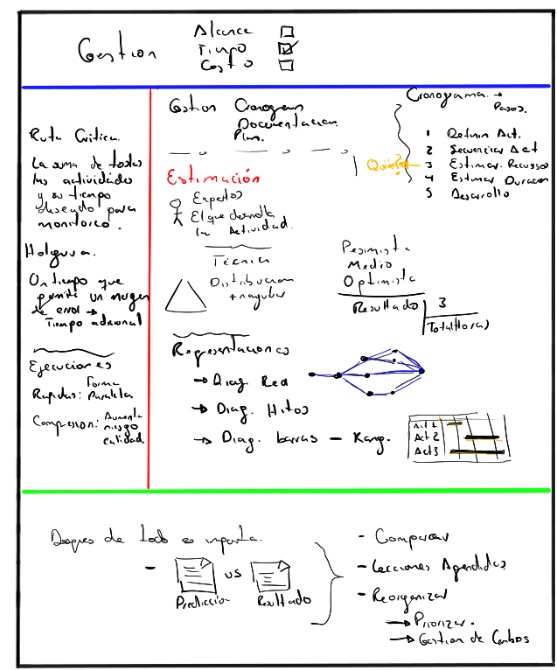 Gestion
Alcance
Tiempo
Costo
Ruta Critica.
La suma de todas
las actividades
y su tiempo
deseado para
monitoreo.
Holgura.
Un tiempo que
permite un margen
de error →
Tiempo adicional
Ejecuciones
Forma
Rapidas: Paralela
Compresion: Aumenta
riesgo
calidad
Gestion Cronograma
Documentacion
Plan.
Estimación
Expertos
El que desarrolla
la Actividad.
Técnica
Distribucion
triangular
Pesimista
Medio
Optimista
Resultado 3
Total(Hora)
Representaciones
→ Diag. Red
→ Diag. Hitos
→ Diag. barras - Kang.
Act 1
Act 2
Act 3
Cronograma. →
Pasos.
1 Definir Act.
2 Secuenciar Act
Quién? 3 Estimar. Recurso
4 Estimar Duracion
5 Desarrollo
Despues de todo es importa.
- Prediccion vs Resultado
- Comparar
- Lecciones Aprendidas
- Reorganizar
→ Priorizar.
→ Gestion de Cambios